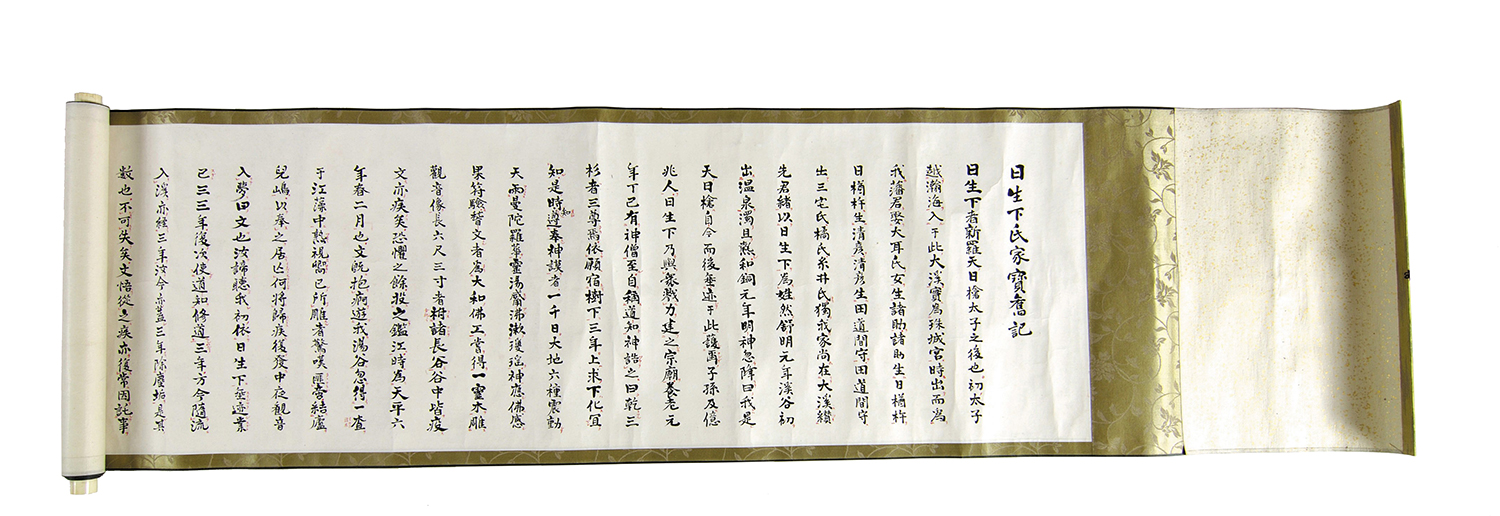 日生下氏家寶舊記
日生下者新羅天日槍太子之後也初太子
越瀚海入于此大渓實為珠城宮時出而為
我藩君娶太耳氏女生諸助諸助生日楢杵
日楢杵生清彦清彦生田道間守田道間守
出三宅氏橘氏糸井氏獨我家尚在大渓纉
先君緒以日生下為姓然舒明元年渓谷初
出温泉濁且熱和銅元年明神忽降曰我是
天日槍自今而後垂迹于此護再子孫及億
兆人日生下乃與衆戮力建之宗廟養老元
年丁巳有神僧至自稱道知神誥之曰乾三
杉者三尊為依願宿樹下三年上求下化冝
知是時知道奉神謨者一千日大地六種震動
天雨曼陀羅華靈湯觱沸漱瓊瑶神應佛感
果符驗稽文者為大和佛工嘗得一靈木雕
觀音像長六尺三寸者柎諸長谷谷中皆疫
文亦疾矣恐懼之餘投之鑑江時為天平六
年春二月也文既抱痾遊我湯谷忽得一查
于江藻中熟視嚮已所雕者驚嘆匪啻結廬
兒嶋以奉之居亡何将歸疾後發中夜觀音
入夢曰文也汝諦聴我初依日生下垂迹業
已三三年後次使道知修道三年方今隨流
入渓亦経三年汝今亦益三年除塵垢是其
數也不可失矣文悟從之疾亦後常因託事